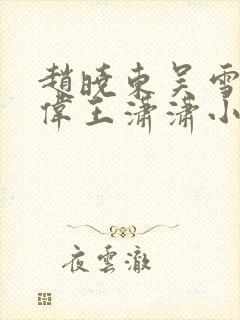 趙曉東吳雪
偉王瀟瀟小
夜雲澈